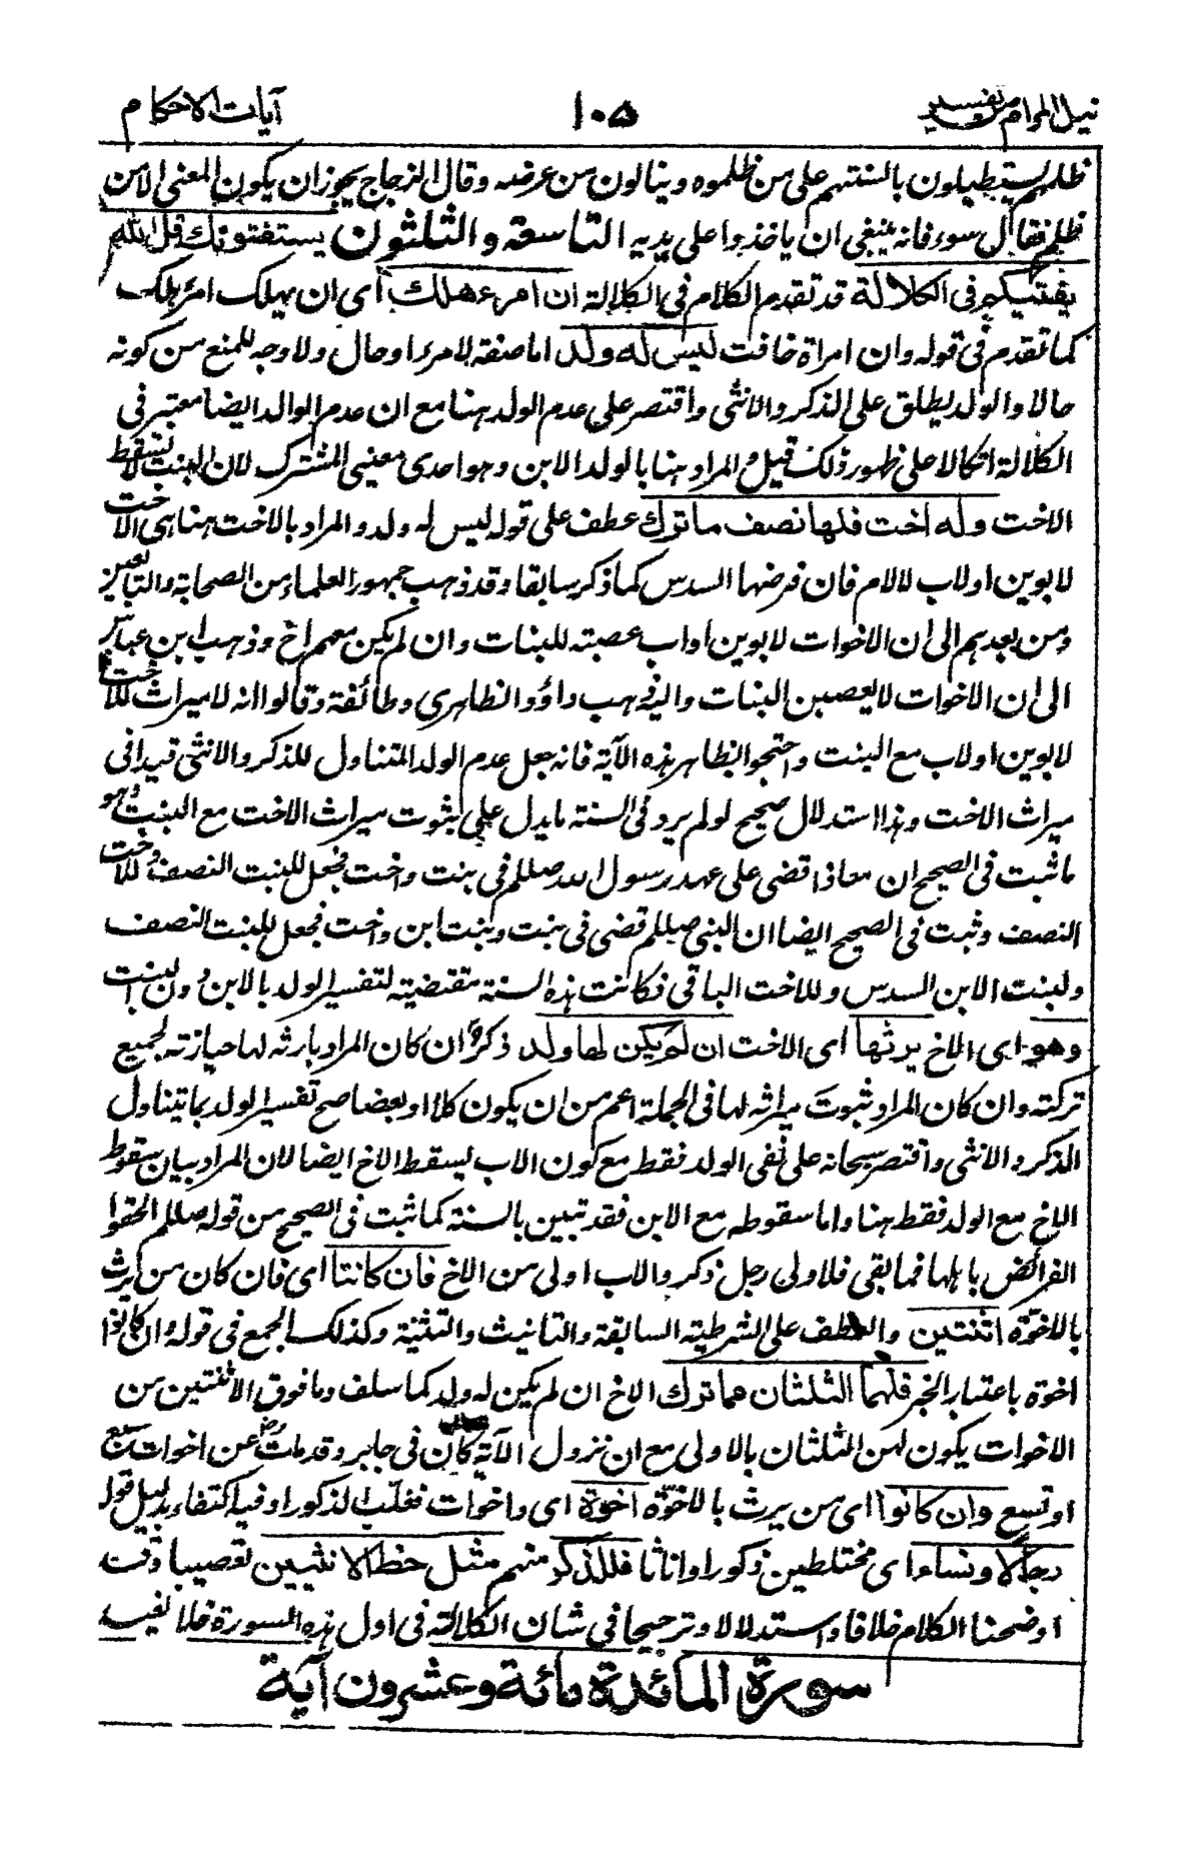 نيل المرام من تفسير ١٠٥ آيات الاحكام
ظلمهم يستطيلون بالسنتهم على من ظلموه وينالون من عرضه وقال الزجاج يجوز ان يكون المعنى الا من
ظلم فقال سوء فانه ينبغى ان ياخذوا على يديه التاسعة والثلثون يستفتونك قل الله
يفتيكم فى الكلالة قد تقدم الكلام فى الكلالة ان امرء هلك اى ان يهلك امرء هلك
كما تقدم فى قوله وان امراة خافت ليس له ولد اما صفة لامرء او حال ولا وجه للمنع من كونه
حالا والولد يطلق على الذكر والانثى واقتصر على عدم الولد هنا مع ان عدم الوالد ايضا معتبر فى
الكلالة اتكالا على ظهور ذلك قيل والمراد هنا بالولد الابن وهو احدى معنيى المشترك لان البنت لا تسقط
الاخت وله اخت فلها نصف ما ترك عطف على قوله ليس له ولد والمراد بالاخت هنا هى الاخت
لابوين او لاب لا لام فان فرضها السدس كما ذكر سابقا وقد ذهب جمهور العلماء من الصحابة والتابعين
ومن بعدهم الى ان الاخوات لابوين او اب عصبة للبنات وان لم يكن معهم اخ وذهب ابن عباس
الى ان الاخوات لا يعصبن البنات واليه ذهب داؤد الظاهرى وطائفة وقالوا انه لا ميراث للاخت
لابوين او لاب مع البنت واحتجوا بظاهر هذه الآية فانه جعل عدم الولد المتناول للذكر والانثى قيدا فى
ميراث الاخت وهذا استدلال صحيح لو لم يرد فى السنة ما يدل على ثبوت ميراث الاخت مع البنت وهو
ما ثبت فى الصحيح ان معاذا قضى على عهد رسول الله صللم فى بنت واخت فجعل للبنت النصف وللاخت
النصف وثبت فى الصحيح ايضا ان النبى صللم قضى فى بنت وبنت ابن واخت فجعل للبنت النصف
ولبنت الابن السدس وللاخت الباقى فكانت هذه السنة مقتضية لتفسير الولد بالابن دون البنت
وهو اى الاخ يرثها اى الاخت ان لم يكن لها ولد ذكر ان كان المراد بارثه لها حيازته لجميع
تركته وان كان المراد ثبوت ميراثه لها فى الجملة اعم من ان يكون كلا او بعضا صح تفسير الولد بما يتناول
الذكر والانثى واقتصر سبحانه على نفى الولد فقط مع كون الاب يسقط الاخ ايضا لان المراد بيان سقوط
الاخ مع الولد فقط هنا واما سقوطه مع الابن فقد تبين بالسنة كما ثبت فى الصحيح من قوله صللم الحقوا
الفرائض باهلها فما بقى فلاولى رجل ذكر والاب اولى من الاخ فان كانتا اى فان كان من يرث
بالاخوة اثنتين والعطف على الشرطية السابقة والتانيث والتثنية وكذلك الجمع فى قوله وان كانوا
اخوة باعتبار الخبر فلهما الثلثان مما ترك الاخ ان لم يكن له ولد كما سلف وما فوق الاثنتين من
الاخوات يكون لهن الثلثان بالاولى مع ان نزول الآية كان فى جابر وقد مات رض عن اخوات سبع
او تسع وان كانوا اى من يرث بالاخوة اخوة اى واخوات فغلب الذكور او فيه اكتفاء بدليل قوله
رجالا ونساء اى مختلطين ذكورا واناثا فللذكر منهم مثل حظ الانثيين تعصيبا وقد
اوضحنا الكلام خلافا واستدلالا وترجيحا فى شان الكلالة فى اول هذه السورة فلا نعيد
سورة المائدة مائة وعشرون آية